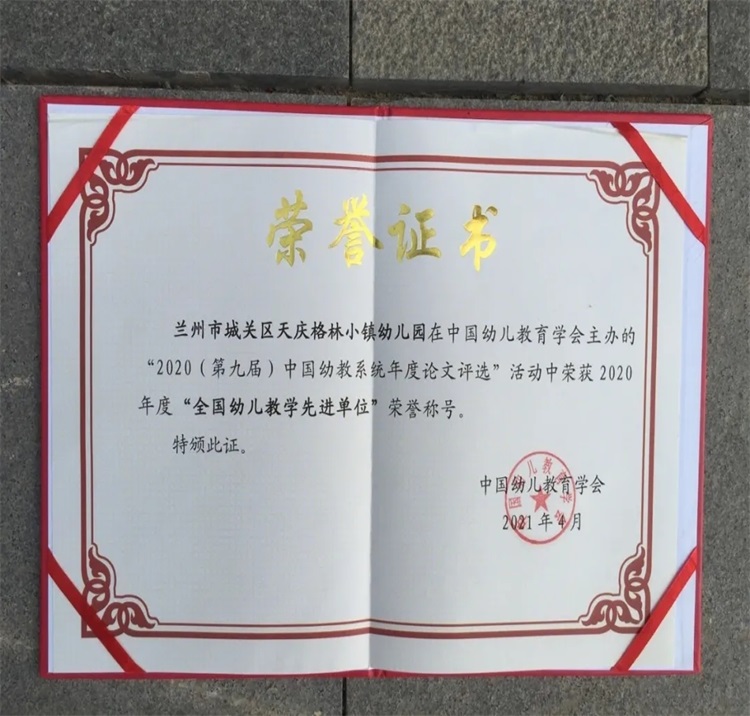 荣誉证书
兰州市城关区天庆格林小镇幼儿园在中国幼儿教育学会主办的
“2020（第九届）中国幼教系统年度论文评选”活动中荣获2020
年度“全国幼儿教学先进单位”荣誉称号。
特颁此证。
中国幼儿教育学会
2021年4月